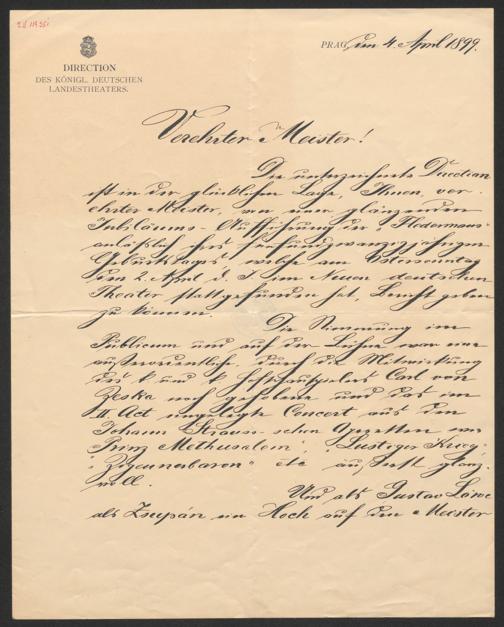 DIRECTION
DES KÖNIGL. DEUTSCHEN
LANDESTHEATERS.
PRAG, am 4. April 1899.
Verehrter Meister!
Die unterzeichnete Direction
ist in der glücklichen Lage, Ihnen, ver-
ehrter Meister, von einer glänzenden
Jubiläums-Aufführung der „Fledermaus“
anläßlich des fünfundzwanzigjährigen
Geburtstages welche am Ostersonntag
den 2. April d. J. im Neuen deutschen
Theater stattgefunden hat, Bericht geben
zu können.
Die Stimmung im
Publicum und auf der Bühne war eine
außerordentliche. Durch die Mitwirkung
des k und k Hofschauspielers Carl von
Zeska noch gehobene und das im
II. Act eingelegte Concert aus den
Johann Strauss-schen Operetten wie
„Prinz Methusalem“, „Lustiger Krieg“
„Zigeunerbaron“ etc äußerst glanz-
voll.
Und als Gustav Löwe
als Zsupán ein Hoch auf den Meister